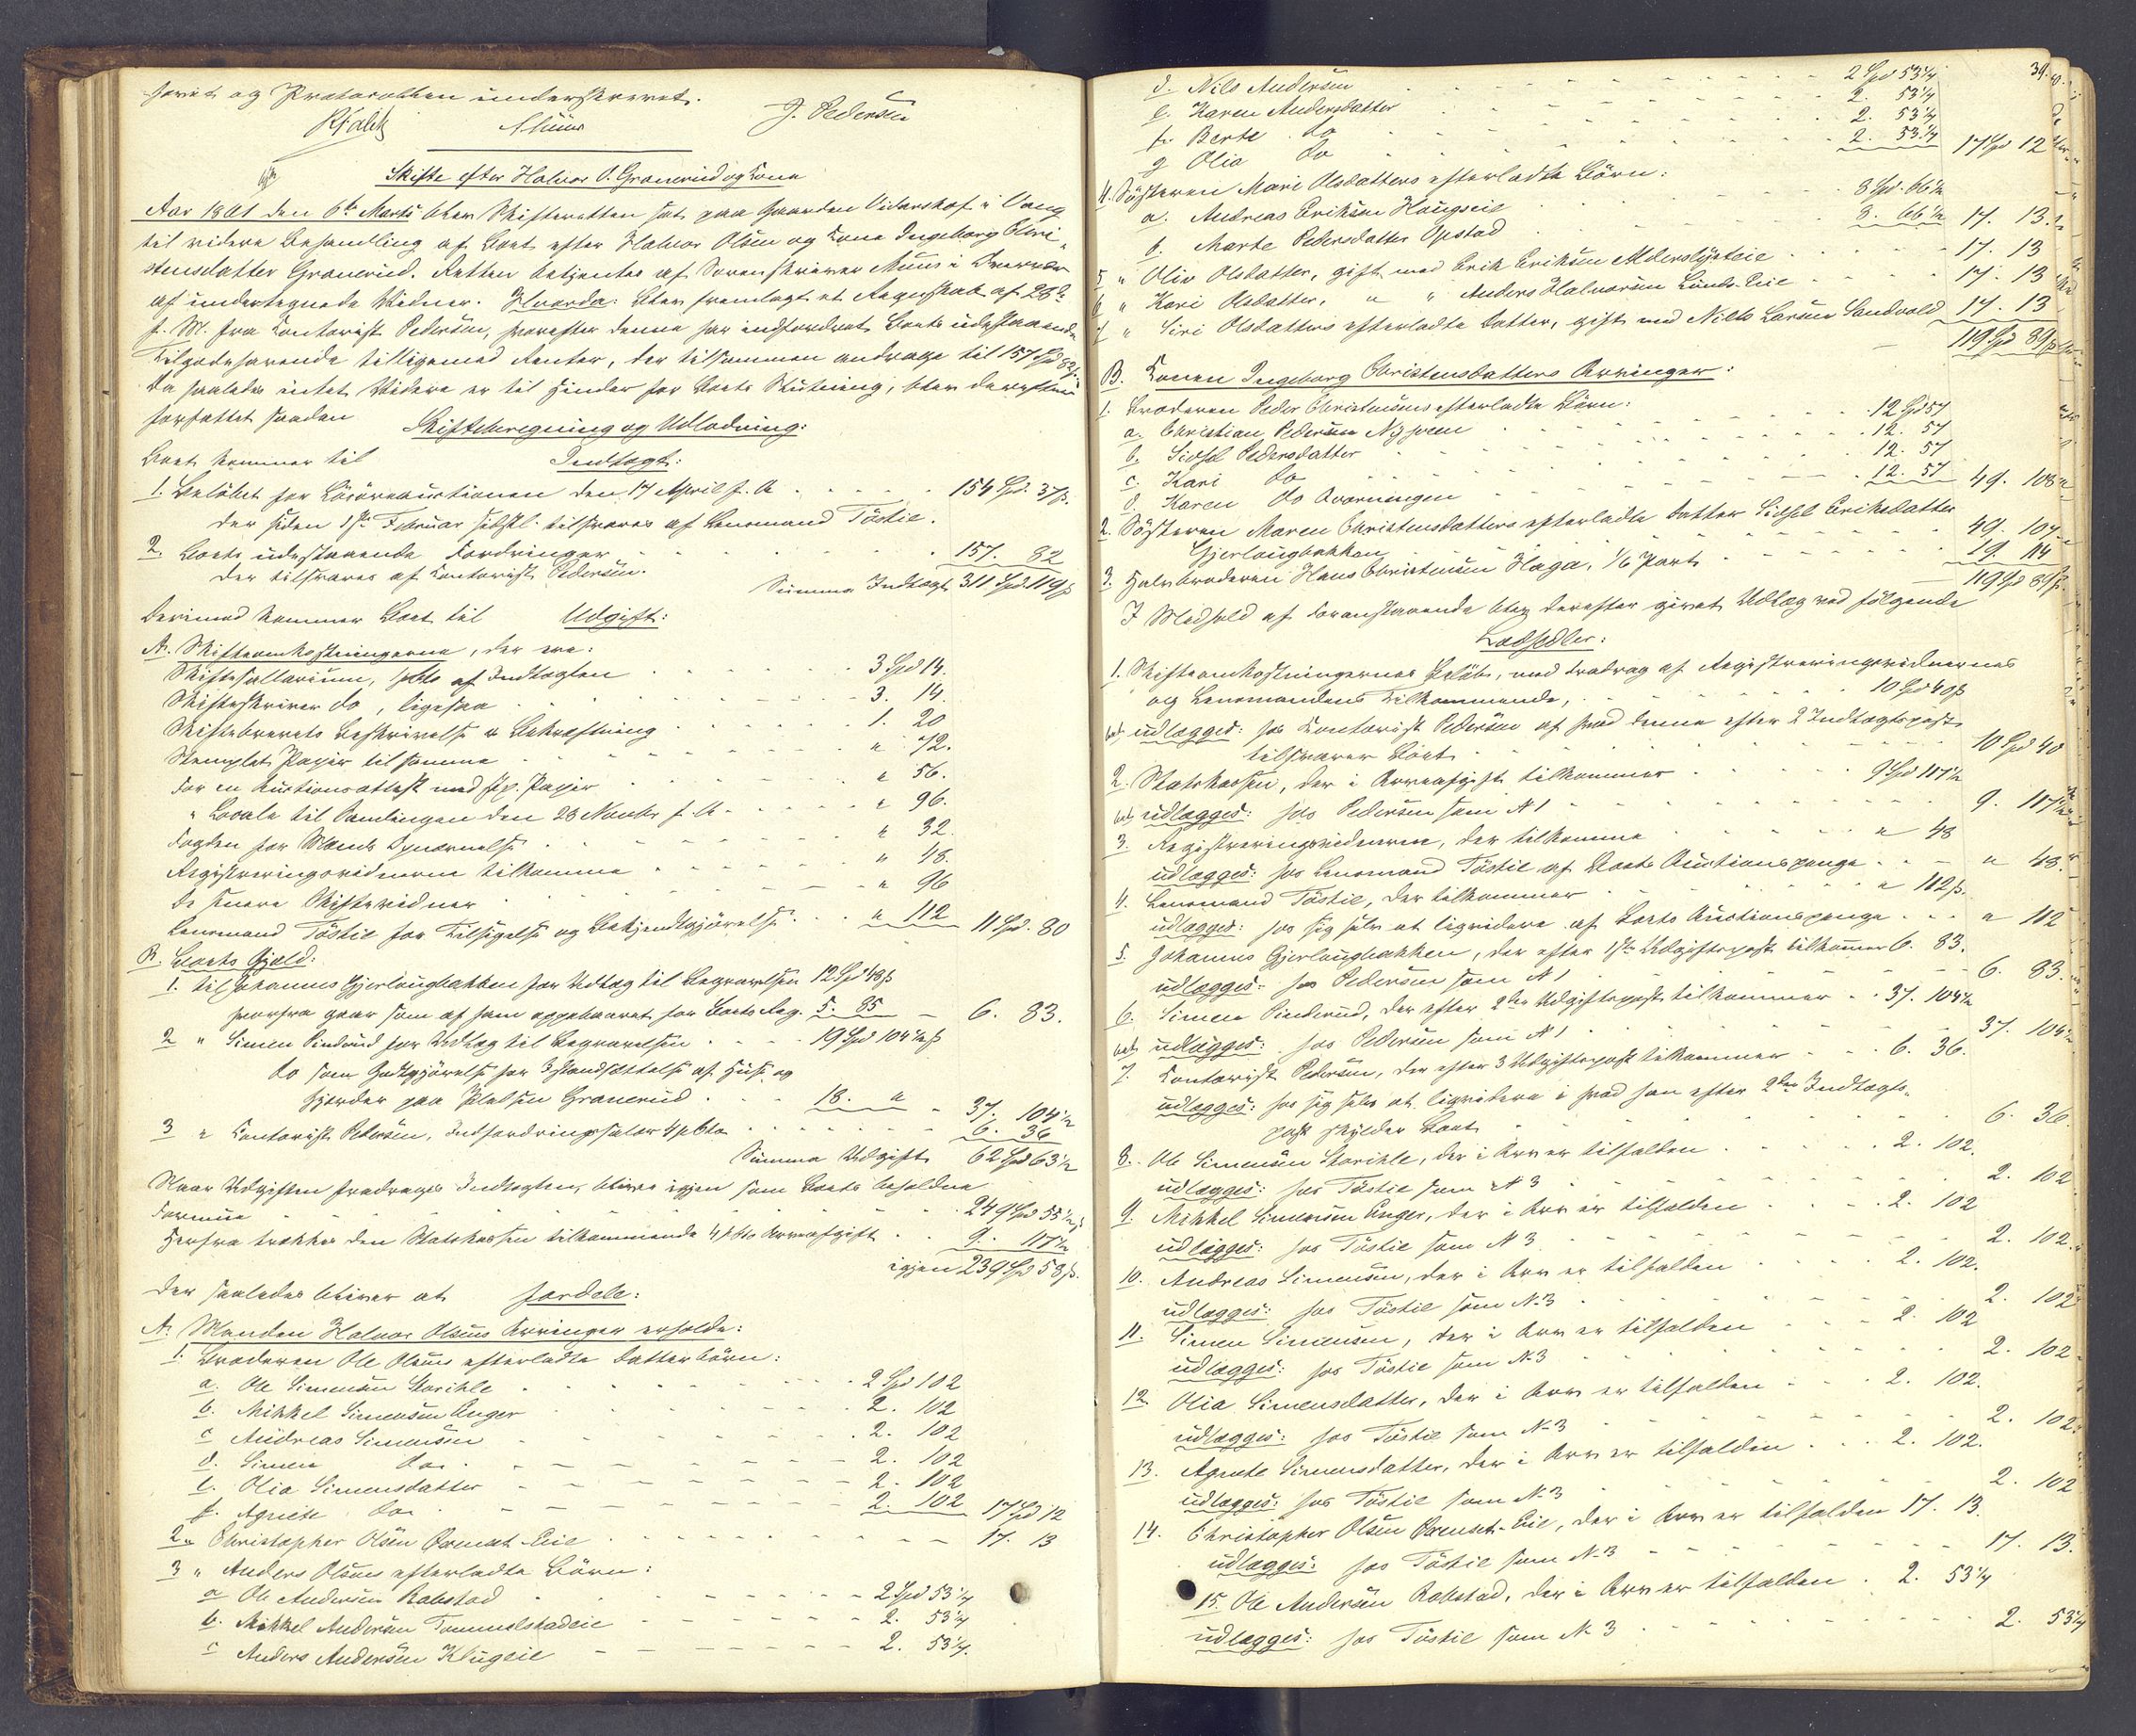 hævet og Protocollen underskrevet.
Muns J. Pedersen
Skifte efter Halvor O. Granerud og Kone
Aar 1861 den 6te Marts blev Skifteretten sat paa Gaarden Vidarshof i Vang
til videre Behandling af Boet efter Halvor Olsen og Kone Ingeborg Chri-
stensdatter Granerud. Retten betjentes af Sorenskriver Muns i Overvær
af undertegnede Vidner. Hvorda: Blev fremlagt et Regnskab af 28de
f. M. fra Contorist Pedersen, hvorefter denne har indfordret Boets udestaaende
Tilgodehavende tilligemed Renter, der tilsammen andrage til 157 Spd 82 s.
Da saaledes intet Videre er til Hinder for Boets Slutning, blev derefter
forfattet saadan Skifteberegning og Udlodning:
Boet kommer til Indtægt:
1. Beløbet for Løsøreauctionen den 17 April f. A. 154 Spd. 37 s.
der siden 1ste Februar sidstl. tilsvares af Lensmand Töstie.
2. Boets udestaaende Fordringer 157. 82
der tilsvares af Contorist Pedersen.
Summa Indtægt 311 Spd. 119 s
Derimod kommer Boet til Udgift:
A. Skifteomkostningerne, der ere:
Skiftesallarium, pCto af Indtægten 3 Spd 14.
Skifteskriver do, ligesaa 3. 14.
Skiftebrevets Beskrivelse & Bekræftning 1. 20
Stemplet Papir til samme " 72.
For en Auctionsattest med st. Papir " 56.
" Locale til Samlingen den 28 Novbr f. A. " 96.
Fogden for Mænds Opnævnelse " 32.
Registreringsvidnerne tilkomme " 48.
De senere Skiftevidner " 96
Lensmand Töstie for Tilsigelse og Bekjendtgjørelse " 112 11 Spd. 80
B. Boets Gjæld:
1. til Johannes Gjerlaugbakken for Udlæg til Begravelsen 12 Spd 48 s
hvorfra gaar som af ham oppebaaret for Boets Reg. 5. 85 6. 83.
2 " Simen Pinderud for Udlæg til Begravelsen 19 Spd 104½ s
do som Godtgjørelse for Istandsættelse af Huse og
Gjerder paa Pladsen Granerud 18. " 37. 104½
3 " Contorist Pedersen, Indfordringssalær 4 pCto 6. 36
Summa Udgift 62 Spd 63½
Naar Udgiften fradrages Indtægten, blive igjen som Boets beholdne
Formue 249 Spd 55½ s
Herfra trækkes den Statskassen tilkommende 4 pCto Arveafgift 9. 117½
igjen 239 Spd 58 s.
der saaledes bliver at fordele:
A. Manden Halvor Olsens Arvinger erholde:
1. Broderen Ole Olsens efterladte Datterbörn:
a. Ole Simensen Storihle 2 Spd 102
b. Mikkel Simensen Enger 2. 102
c Andreas Simensen 2. 102
d. Simen do. 2. 102
e. Olia Simensdatter 2. 102
f. Agnete do. 2. 102 17 Spd 12
2. " Christopher Olsen Ormset-Eie 17. 13
3 " Anders Olsens efterladte Börn:
a Ole Andersen Rabstad 2 Spd 53¼
b. Mikkel Andersen Tommelstadeie 2. 53¼
c Anders Andersen Klugeie 2. 53¼.
39.
d. Nils Andersen 2 Spd 53¼
e. Karen Andersdatter 2. 53¼
f. Berte do 2. 53¼
g Olia do 2. 53¼ 17 Spd 12
4. Søsteren Mari Olsdatters efterladte Börn:
a. Andreas Eriksen Haugseie 8 Spd. 66½
b. Marte Pedersdatter Opstad 8. 66½ 17. 13.
5 " Oliv Olsdatter, gift med Erik Eriksen Alderslysteie 17. 13
6 " Kari Olsdatter, " " Anders Halvorsen Lunds-Eie 17. 13
7 " Siri Olsdatters efterladte Datter, gift med Nils Larsen Sandvold 17. 13
119 Spd 89 s
B. Konen Ingeborg Christensdatters Arvinger:
1. Broderen Peder Christensens efterladte Börn:
a. Christian Pedersen 12 Spd 57
b. Sidsel Pedersdatter 12. 57
c. Kari do 12. 57
d. Karen do Qværningen 12. 57 49. 108
2. Søsteren Maren Christensdatters efterladte Datter Sidsel Eriksdatter
Gjerlaugbakken 49. 107
3. Halvbroderen Hans Christensen Haga, 1/6 Part 19. 114
119 Spd 89 s.
I Medhold af Foranstaaende blev derefter givet Udlæg ved følgende
Lodsedler:
1. Skifteomkostningernes Beløb, med Fradrag af Registreringsvidnernes
og Lensmandens Tilkommende, 10 Spd 40 s
udlægges: hos Contorist Pedersen af hvad denne efter 2 Indtægtspost
tilsvarer Boet 10 Spd 40
2. Statskassen, der i Arveafgift tilkommer 9 Spd 117½
udlægges: hos Pedersen som N 1 9. 117½
3. Registreringsvidnerne, der tilkomme " 48
udlægges: hos Lensmand Töstie af Boets Auctionspenge " 48.
4. Lensmand Töstie, der tilkommer " 112 s.
udlægges: hos sig selv at liqvidere af Boets Auctionspenge " 112
5. Johannes Gjerlaugbakken, der efter 1ste Udgiftspost tilkommer 6. 83.
udlægges: hos Pedersen som N 1 6. 83.
6. Simen Pinderud, der efter 2den Udgiftspost tilkommer 37. 104½
udlægges: hos Pedersen som N 1 37. 104½
7. Contorist Pedersen, der efter 3 Udgiftspost tilkommer 6. 36.
udlægges: hos sig selv at liqvidere i hvad han efter 2den Indtægts-
post skylder Boet 6. 36.
8. Ole Simensen Storihle, der i Arv er tilfalden 2. 102.
udlægges: hos Töstie som N 3 2. 102
9. Mikkel Simensen Enger, der i Arv er tilfalden 2. 102
udlægges: hos Töstie som N 3 2. 102.
10. Andreas Simensen, der i Arv er tilfalden 2. 102.
udlægges: hos Töstie som N. 3 2. 102
11. Simen Simensen, der i Arv er tilfalden 2. 102
udlægges: hos Töstie som N. 3 2. 102
12. Olia Simensdatter, der i Arv er tilfalden 2. 102.
udlægges: hos Töstie som N. 3 2. 102
13. Agnete Simensdatter, der i Arv er tilfalden 2. 102.
udlægges: hos Töstie som N. 3 2. 102
14. Christopher Olsen Ormset-Eie, der i Arv er tilfalden 17. 13.
udlægges: hos Töstie som N. 3 17. 13.
15. Ole Andersen Rabstad, der i Arv er tilfalden 2. 53¼
udlægges: hos Töstie som N. 3 2. 53¼